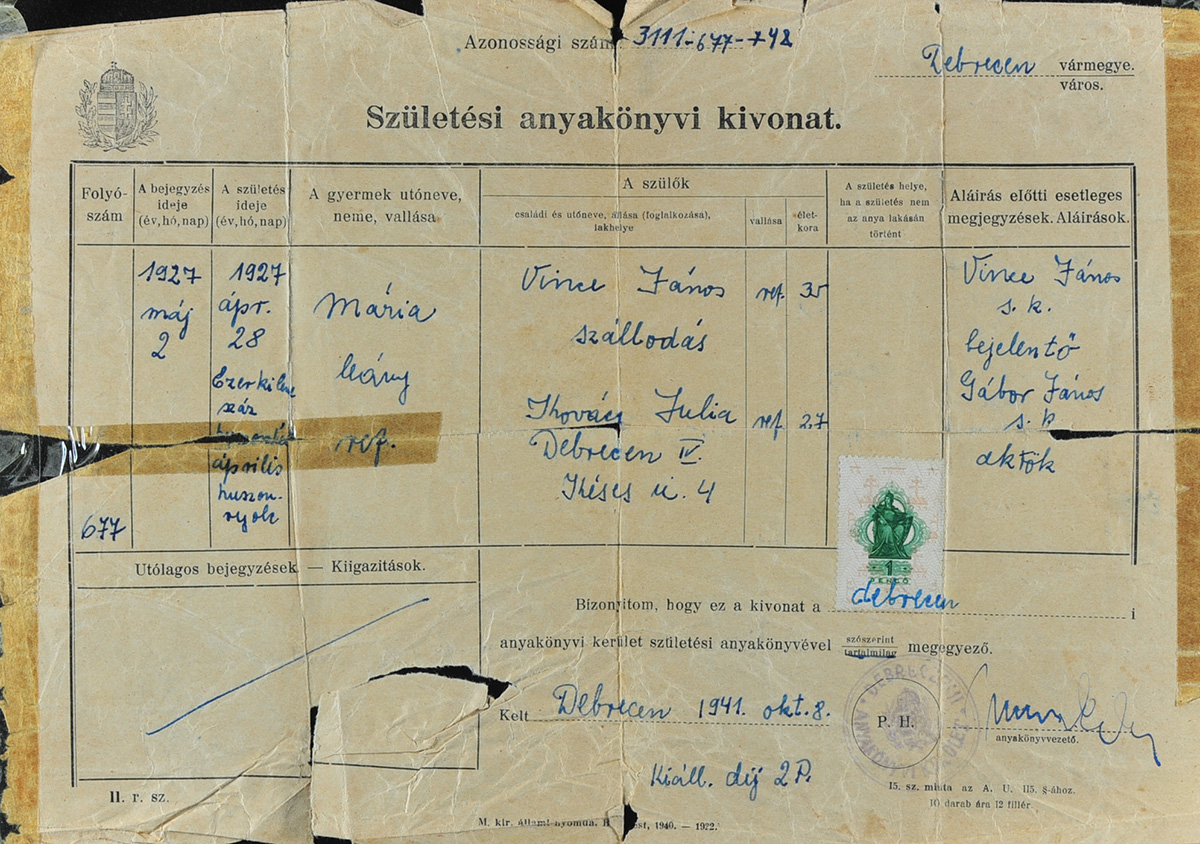 Azonossági szám 3111-677-742
Debrecen vármegye.
város.
Születési anyakönyvi kivonat.
Folyó-
szám
A bejegyzés
ideje
(év, hó, nap)
A születés
ideje
(év, hó, nap)
A gyermek utóneve,
neme, vallása
A szülők
családi és utóneve, állása (foglalkozása),
lakhelye
vallása
élet-
kora
A születés helye,
ha a születés nem
az anya lakásán
történt
Aláírás előtti esetleges
megjegyzések. Aláírások.
677
1927
máj
2
1927
ápr.
28
Ezerkilenc
száz
április
huszon-
nyolc
Mária
leány
ref.
Vince János
szállodás
Kovács Julia
Debrecen IV.
Késes u. 4
ref.
ref.
35
27
Vince János
s. k.
bejelentő
Gábor János
s. k
aktök
1
PENGŐ
Utólagos bejegyzések. — Kiigazitások.
Bizonyitom, hogy ez a kivonat a debrecen i
anyakönyvi kerület születési anyakönyvével szószerint
tartalmilag megegyező.
Kelt Debrecen 1941. okt. 8.
P. H.
DEBRECZENI
anyakönyvvezető.
Kiáll. díj 2 P.
11. r. sz.
15. sz. minta az A. U. 115. §-ához.
10 darab ára 12 fillér.
M. kir. állami nyomda. B est, 1940. — 1922.